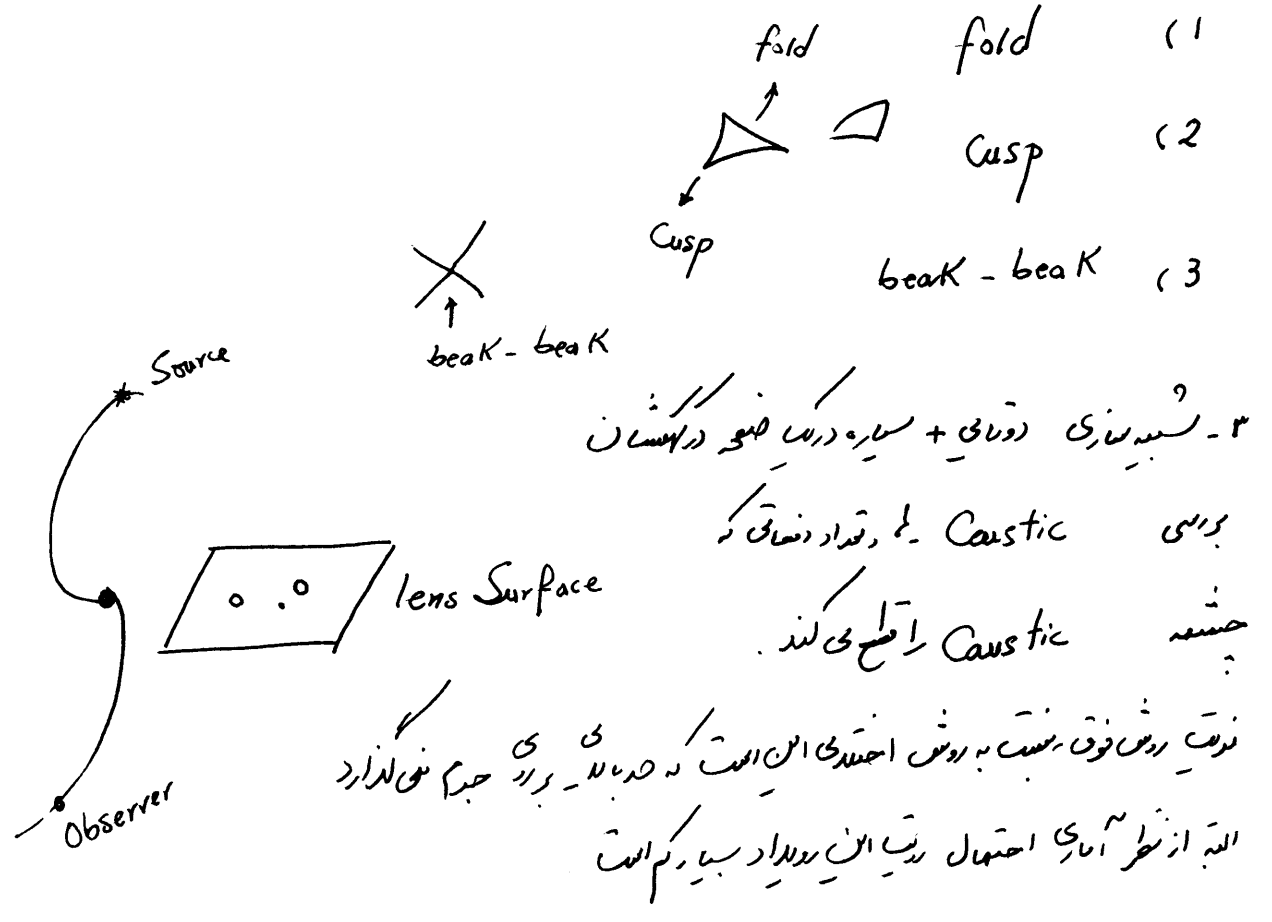 fold
fold (1
Cusp (2
Cusp
beak - beak (3
beak - beak
Source
۳ - شبیه سازی دوتایی + سیاره در یک صفحه در کهکشان
بررسی Caustic ها و تعداد دفعاتی که
lens Surface
چشمه Caustic را قطع می کند.
مزیت روش فوق نسبت به روش اختلالی این است که حد بالایی بر روی جرم نمی گذارد
Observer
البته از نظر آماری احتمال رویت این رویداد بسیار کم است